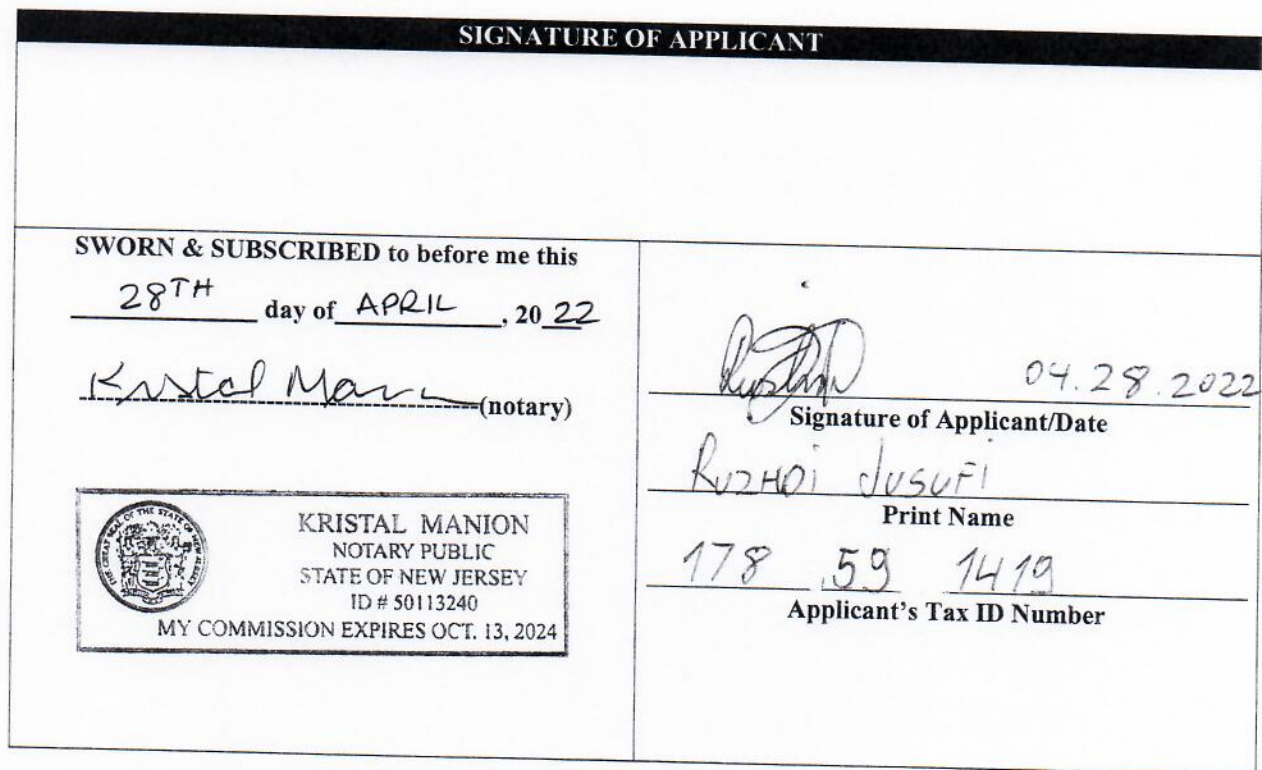 SIGNATURE OF APPLICANT
SWORN & SUBSCRIBED to before me this
28TH day of APRIL, 20 22
Kristal Manion (notary)
THE GREAT SEAL OF THE STATE OF NEW JERSEY
KRISTAL MANION
NOTARY PUBLIC
STATE OF NEW JERSEY
ID # 50113240
MY COMMISSION EXPIRES OCT. 13, 2024
04.28.2022
Signature of Applicant/Date
RUZHDi JUSUFI
Print Name
178 59 1419
Applicant's Tax ID Number